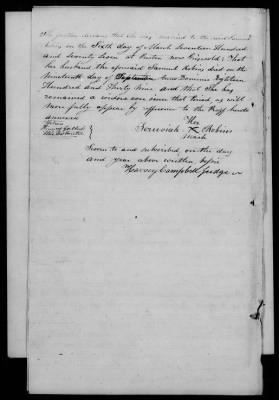 She further declares that she was married to the said Samuel
Robins on the Sixth day of March Seventeen Hundred
and Seventy Seven at Groton now Griswold; That
her husband the aforesaid Samuel Robins died on the
Nineteenth day of September Anno Domini Eighteen
Hundred and Thirty Nine and that She has
remained a widow ever since that time, as will
more fully appear by reference to the proof hereto
annexed
Her
Jerusiah X Robins
mark
Sworn to and subscribed, on the day
and year above written before
Harvey Campbell Judge